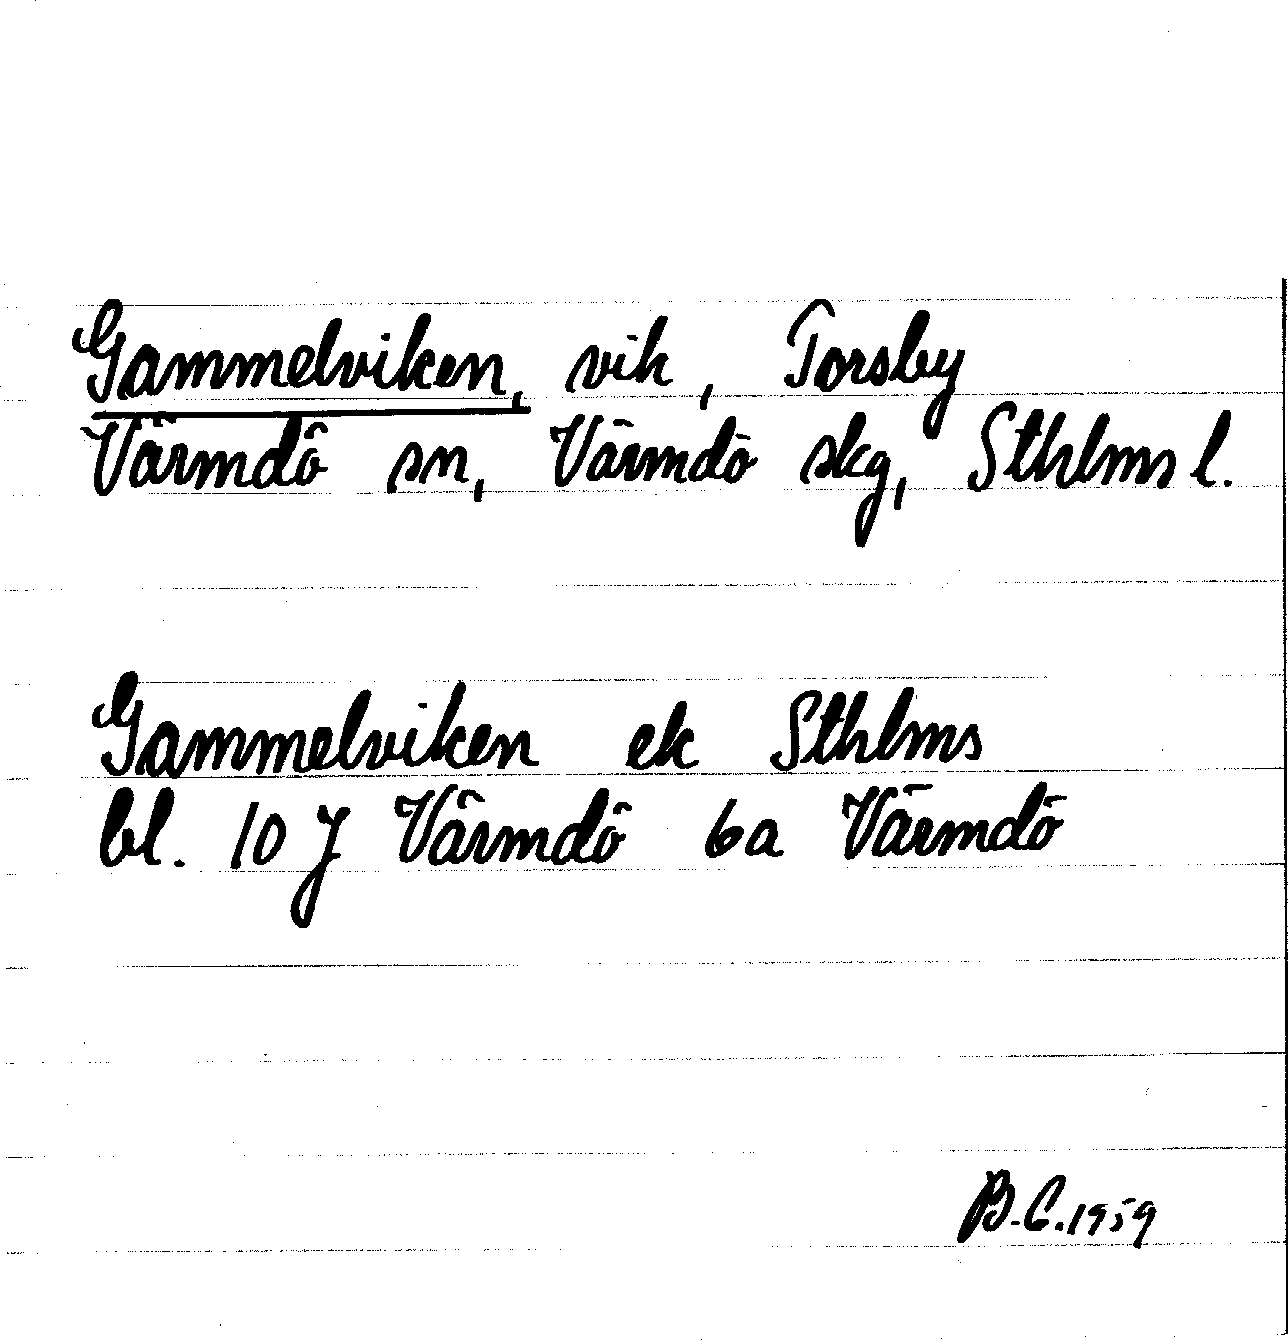 Gammelviken, vik, Torsby
Värmdö sn, Värmdö skg, Sthlms l.
Gammelviken ek Sthlms
bl. 10 J Värmdö 6a Värmdö
B.C. 1959